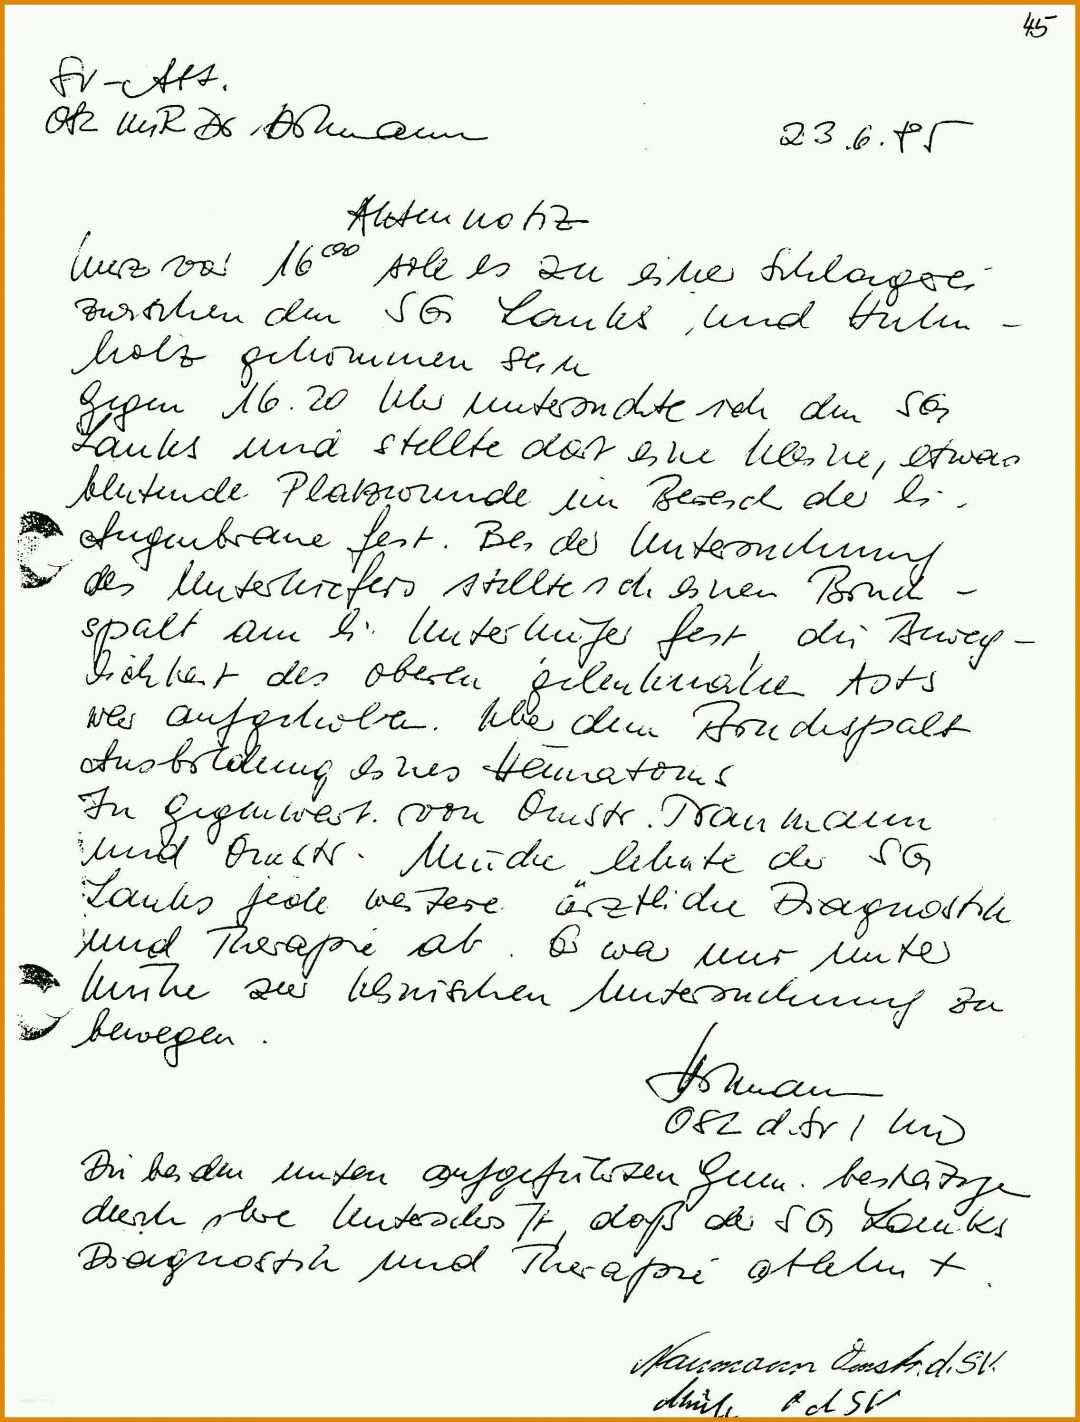 45
SV-Abt.
OSL MR Dr.
23.6.85
Aktennotiz
Kurz vor 16⁰⁰ soll es zu einer Schlägerei
zwischen den SG Lauks und
holz gekommen sein
Gegen 16.20 Uhr untersuchte ich den SG
Lauks und stellte dort eine kleine, etwas
blutende Platzwunde im Bereich der li.
Augenbraue fest. Bei der Untersuchung
des Unterkiefers stellte ich einen Bruch-
spalt am li. Unterkiefer fest, die Beweg-
lichkeit des oberen gelenknahen Asts
war aufgehoben. Über dem Bruchspalt
Ausbildung eines Hämatoms
In Gegenwart von Omstr.
und Omstr. lehnte der SG
Lauks jede weitere ärztliche Diagnostik
und Therapie ab. Er war nur unter
Mühe zur klinischen Untersuchung zu
bewegen.
OSL d. SV / MD
Die beiden unten aufgeführten Genn. bestätigen
durch ihre Unterschrift, daß der SG Lauks
Diagnostik und Therapie ablehnt.
Naumann Omstr. d. SV.
d SV